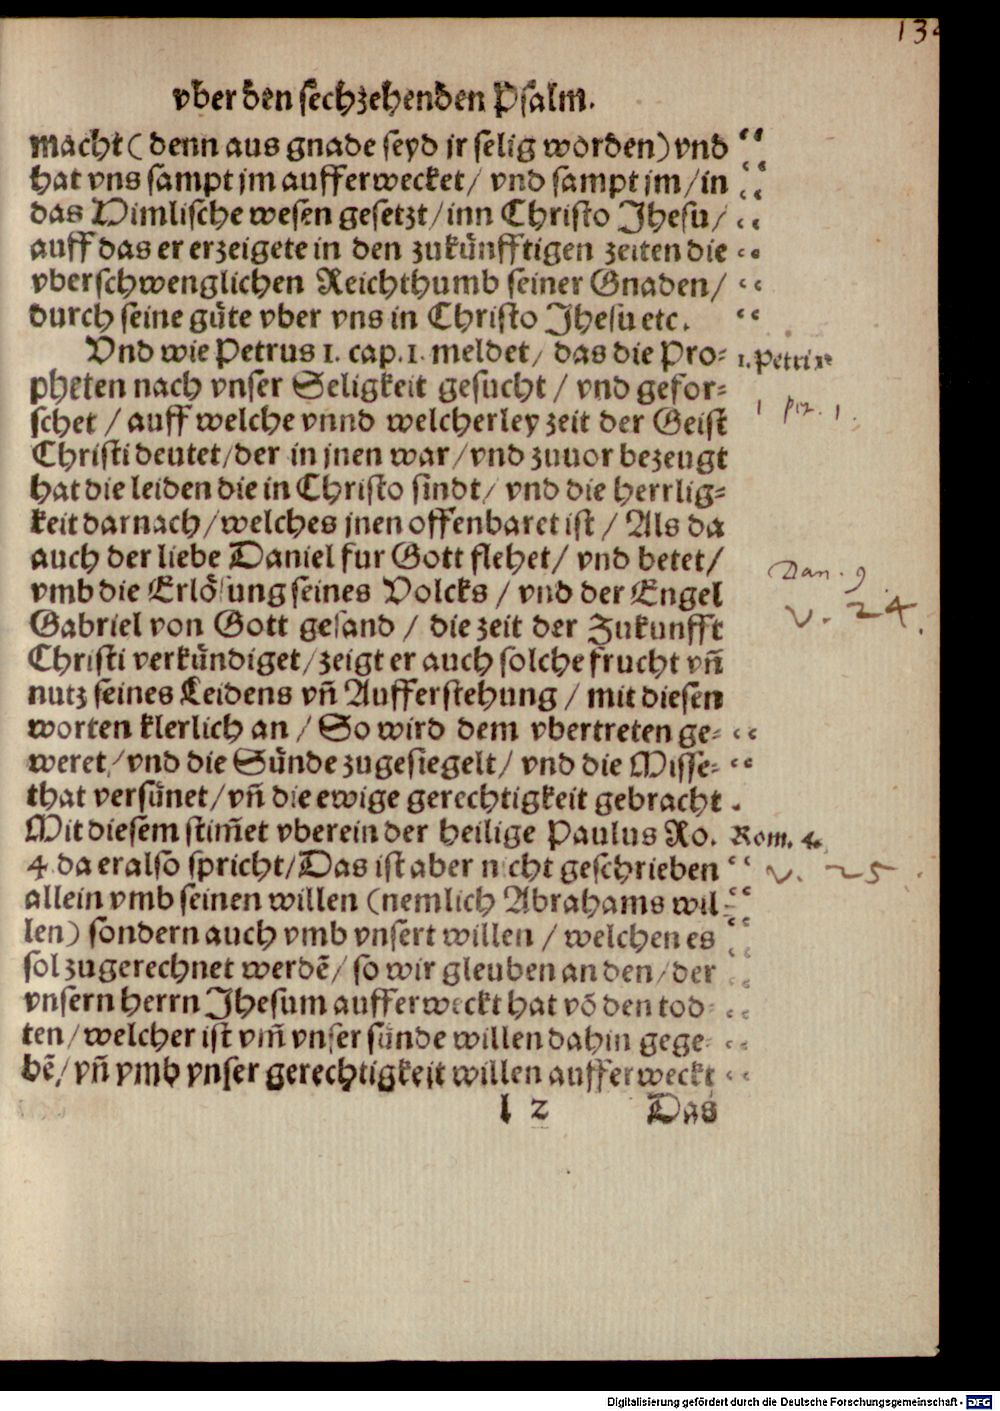 vber den sechzehenden Psalm.
macht (denn aus gnade seyd jr selig worden) vnd
hat vns sampt jm aufferwecket/ vnd sampt jm/in
das Himlische wesen gesetzt/inn Christo Jhesu/
auff das er erzeigete in den zukünfftigen zeiten die
vberschwenglichen Reichthumb seiner Gnaden/
durch seine güte vber vns in Christo Jhesu etc.
Vnd wie Petrus 1. cap. 1. meldet/ das die Pro= 1. Petri 1.
pheten nach vnser Seligkeit gesucht / vnd gefor=
1 pet. 1.
schet / auff welche vnnd welcherley zeit der Geist
Christi deutet/der in jnen war/vnd zuuor bezeugt
hat die leiden die in Christo sindt/ vnd die herrlig=
keit darnach/welches jnen offenbaret ist / Als da
auch der liebe Daniel fur Gott flehet/ vnd betet/
Dan. 9
vmb die Erlösung seines Volcks / vnd der Engel
v. 24.
Gabriel von Gott gesand / die zeit der Zukunfft
Christi verkündiget/zeigt er auch solche frucht vñ
nutz seines Leidens vñ Aufferstehung / mit diesen
worten klerlich an / So wird dem vbertreten ge=
weret/vnd die Sünde zugesiegelt/ vnd die Misse=
that versünet/vñ die ewige gerechtigkeit gebracht.
Mit diesem stim̃et vberein der heilige Paulus Ro. Rom. 4.
4. da er also spricht/Das ist aber nicht geschrieben
v. 25.
allein vmb seinen willen (nemlich Abrahams wil=
len) sondern auch vmb vnsert willen / welchen es
sol zugerechnet werdẽ/ so wir gleuben an den/der
vnsern herrn Jhesum aufferweckt hat võ den tod
ten/welcher ist vm̃ vnser sünde willen dahin gege
bẽ/vñ vmb vnser gerechtigkeit willen aufferweckt
l 2 Das
Digitalisierung gefördert durch die Deutsche Forschungsgemeinschaft - DFG